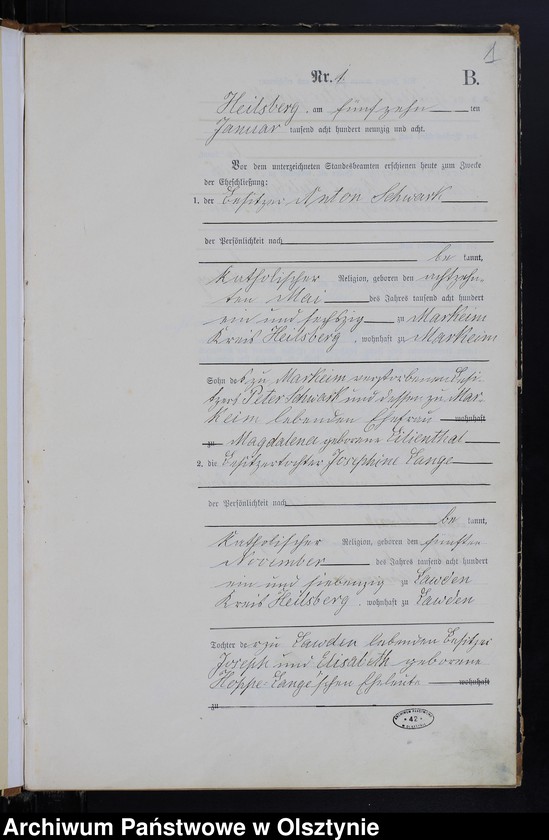 1
Nr. 1.
B.
Heilsberg, am fünfzehn ten
Januar tausend acht hundert neunzig und acht.
Vor dem unterzeichneten Standesbeamten erschienen heute zum Zwecke
der Eheschließung:
1. der Besitzer Anton Schwark
der Persönlichkeit nach
be kannt,
katholischer Religion, geboren den achtzehn-
ten Mai des Jahres tausend acht hundert
ein und sechszig zu Markeim
Kreis Heilsberg, wohnhaft zu Markeim
Sohn des zu Markeim verstorbenen Besi-
tzers Peter Schwark und dessen zu Mar-
keim lebenden Ehefrau wohnhaft
zu Magdalena geborene Lilienthal
2. die Besitzertochter Josephine Lange
der Persönlichkeit nach
be kannt,
katholischer Religion, geboren den fünften
November des Jahres tausend acht hundert
ein und siebenzig zu Lawden
Kreis Heilsberg, wohnhaft zu Lawden
Tochter der zu Lawden lebenden Besitzer
Joseph und Elisabeth geborene
Hoppe Lange'schen Eheleute wohnhaft
zu
ARCHIWUM PAŃSTWOWE
* 42 *
W OLSZTYNIE
Archiwum Państwowe w Olsztynie